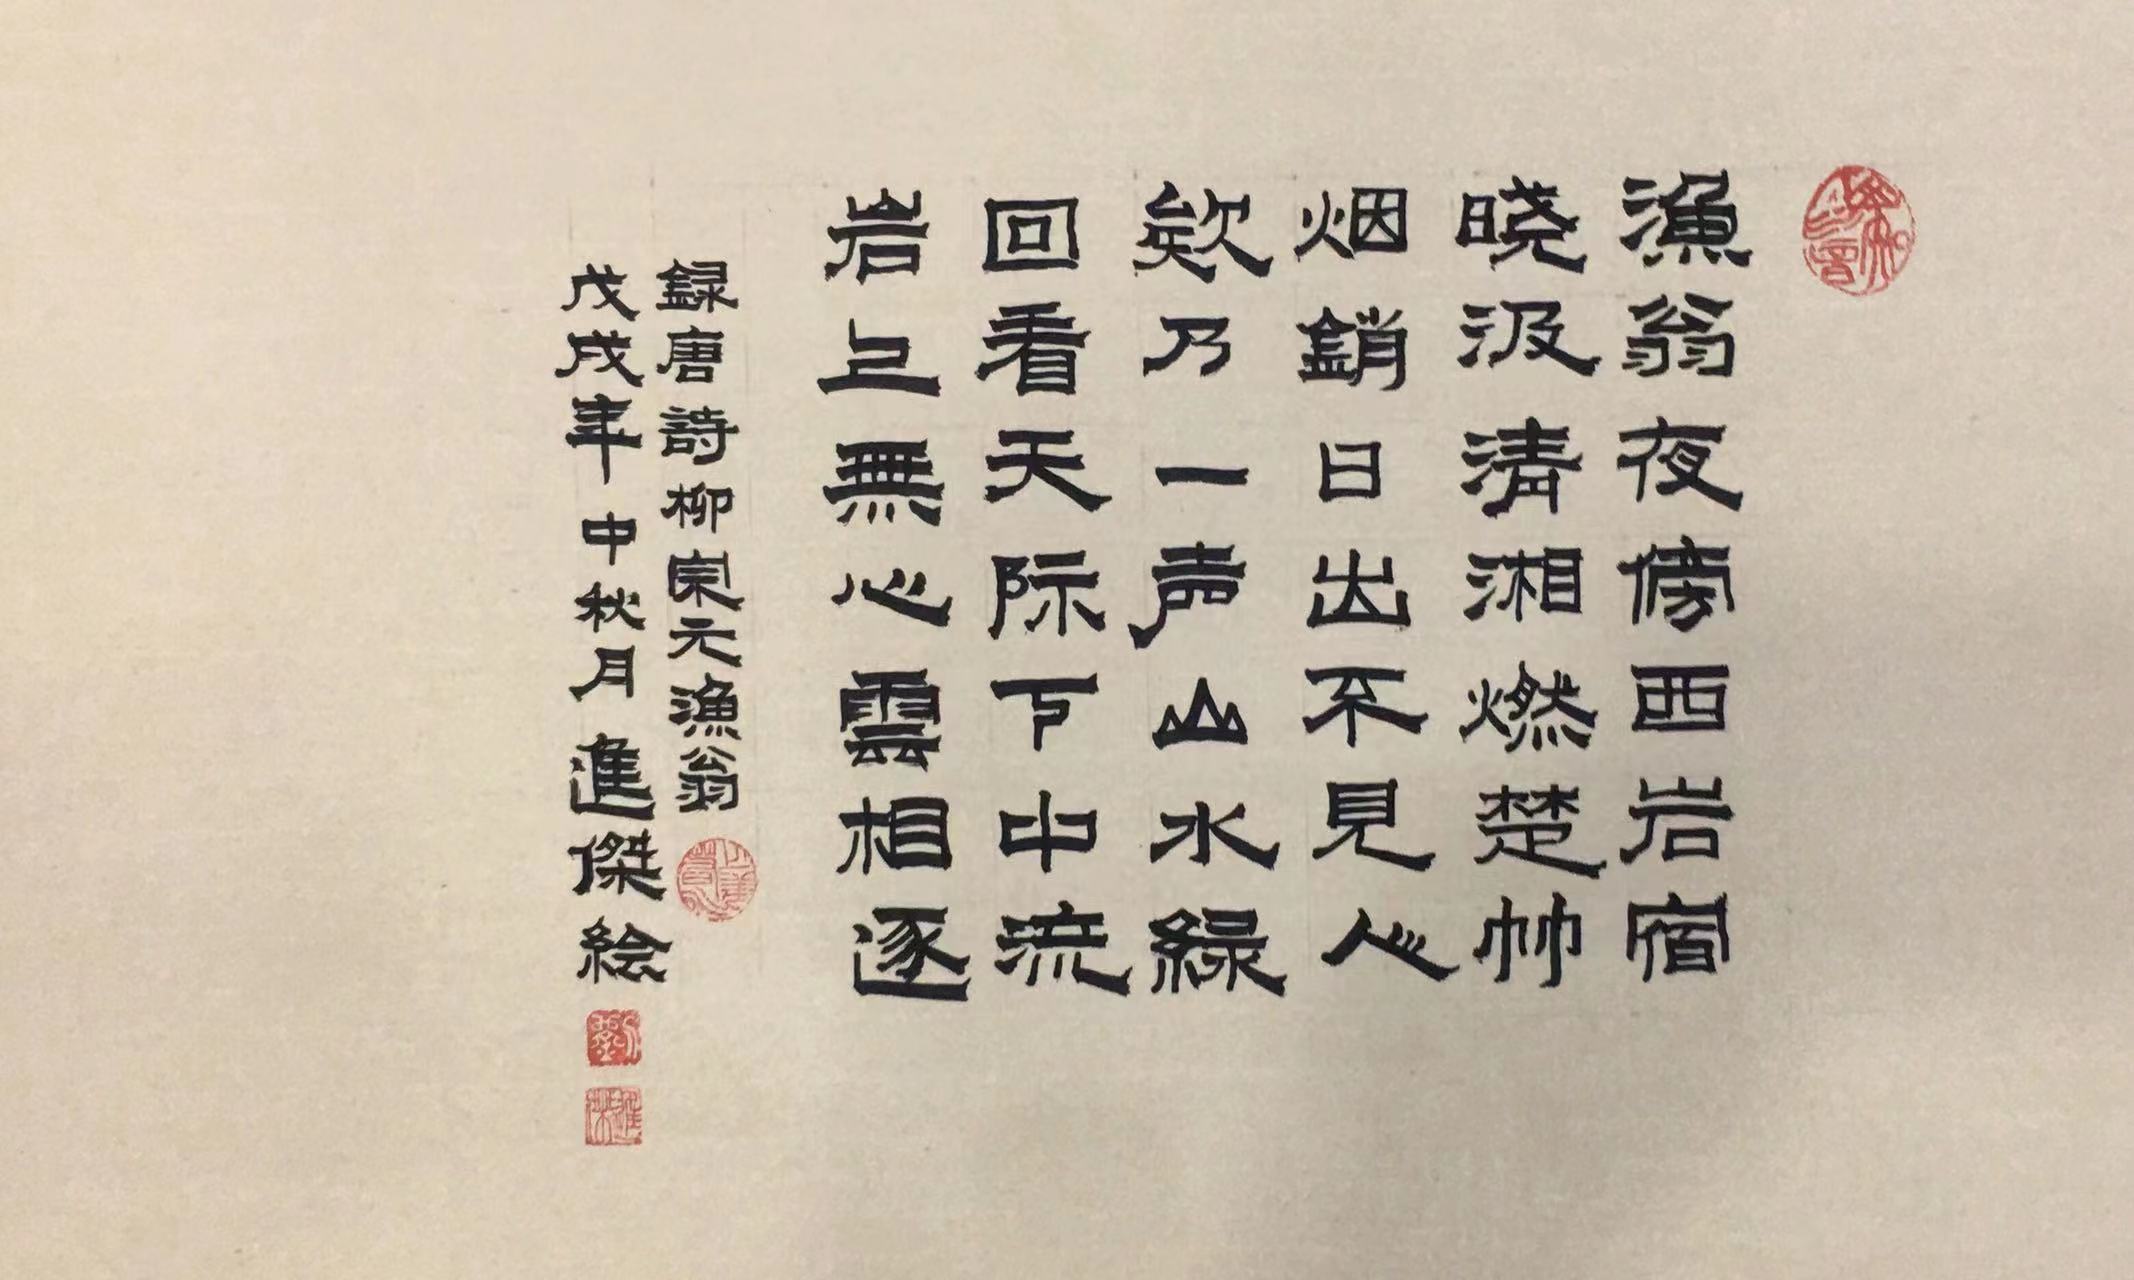 漁翁夜傍西岩宿
晓汲清湘燃楚竹
烟銷日出不見人
欸乃一声山水緑
回看天际下中流
岩上無心雲相逐
録唐詩柳宗元漁翁
戊戌年中秋月進傑絵
劉
進傑